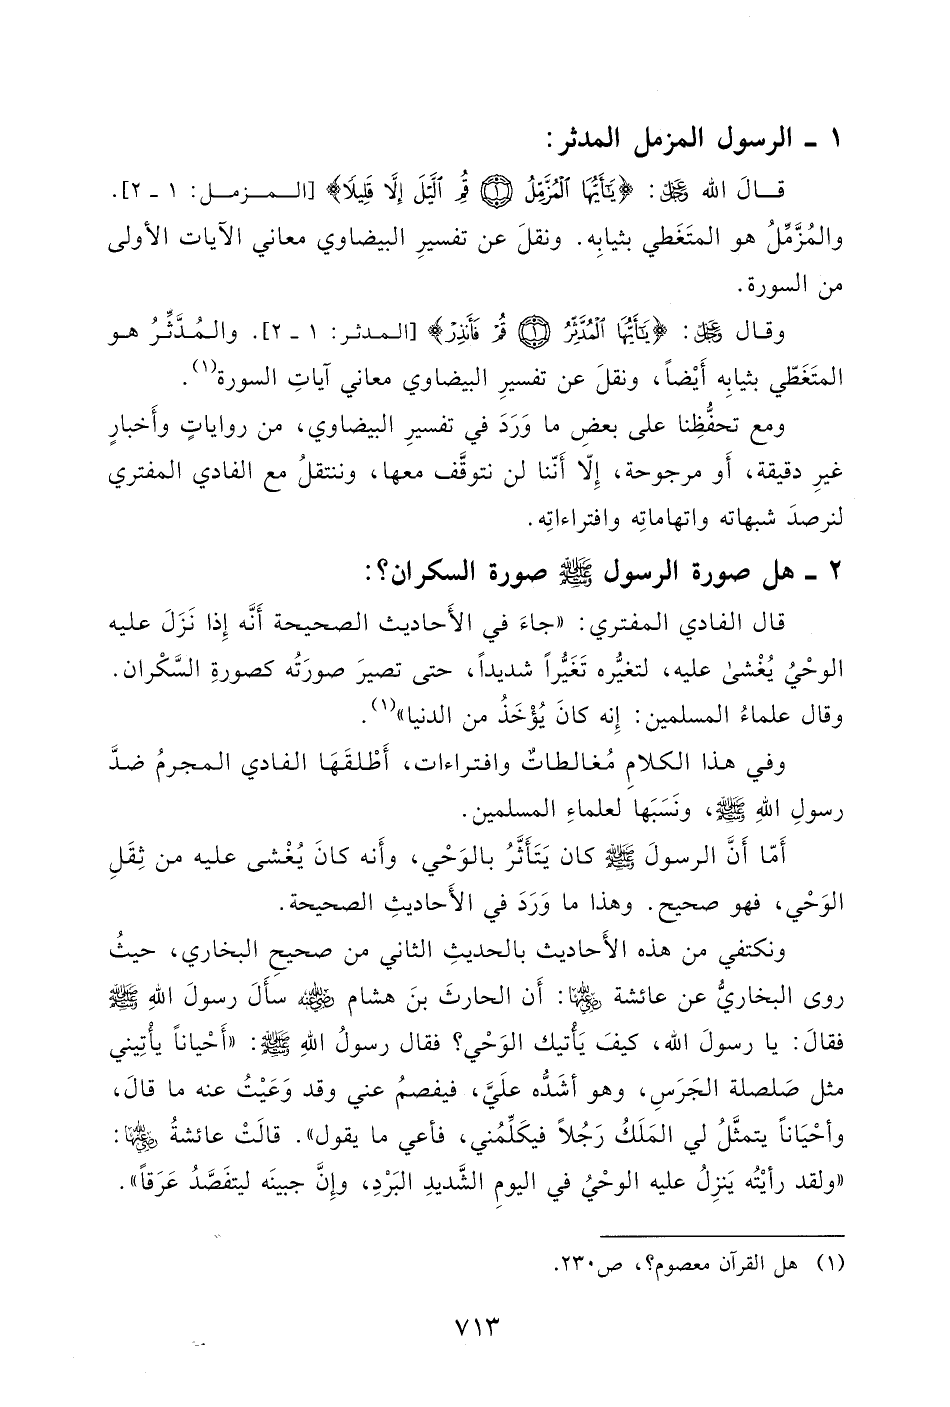 ١ ـ الرسول المزمل المدثر:
قـالَ الله ﷻ: ﴿يَٰٓأَيُّهَا ٱلْمُزَّمِّلُ ۝١ قُمِ ٱلَّيْلَ إِلَّا قَلِيلًا﴾ [الـمـزمـل: ١ ـ ٢].
والمُزَّمِّلُ هو المتَغَطي بثيابِه. ونقلَ عن تفسيرِ البيضاوي معاني الآيات الأولى
من السورة.
وقـال ﷻ: ﴿يَٰٓأَيُّهَا ٱلْمُدَّثِّرُ ۝١ قُمْ فَأَنذِرْ﴾ [المدثر: ١ ـ ٢]. والـمُـدَّثِّـرُ هـو
المتَغَطّي بثيابِه أَيْضاً، ونقلَ عن تفسيرِ البيضاوي معاني آياتِ السورة(١).
ومع تحفُّظِنا على بعضِ ما وَرَدَ في تفسيرِ البيضاوي، من رواياتٍ وأَخبارٍ
غيرِ دقيقة، أَو مرجوحة، إِلّا أَنّنا لن نتوقَّف معها، وننتقلُ مع الفادي المفتري
لنرصدَ شبهاته واتهاماتِه وافتراءاتِه.
٢ ـ هل صورة الرسول ﷺ صورة السكران؟:
قال الفادي المفتري: «جاءَ في الأَحاديث الصحيحة أَنَّه إِذا نَزَلَ عليه
الوحْيُ يُغْشىٰ عليه، لتغيُّره تَغَيُّراً شديداً، حتى تصيرَ صورَتُه كصورةِ السَّكْران.
وقال علماءُ المسلمين: إِنه كانَ يُؤْخَذُ من الدنيا»(١).
وفي هـذا الكلامِ مُغالطاتٌ وافتراءات، أَطْلـقَـهَا الفادي المجرمُ ضدَّ
رسولِ اللهِ ﷺ، ونَسَبَها لعلماءِ المسلمين.
أَمّا أَنَّ الرسولَ ﷺ كان يَتَأَثَّرُ بالوَحْي، وأَنه كانَ يُغْشى عليه من ثِقَلِ
الوَحْي، فهو صحيح. وهذا ما وَرَدَ في الأَحاديثِ الصحيحة.
ونكتفي من هذه الأَحاديث بالحديثِ الثاني من صحيحِ البخاري، حيثُ
روى البخاريُّ عن عائشة ﵂: أَن الحارثَ بنَ هشام ﵁ سأَلَ رسولَ اللهِ ﷺ
فقالَ: يا رسولَ الله، كيفَ يَأْتيك الوَحْي؟ فقال رسولُ اللهِ ﷺ: «أَحْياناً يأْتِيني
مثل صَلصلة الجَرَسِ، وهو أشَدُّه علَيَّ، فيفصمُ عني وقد وَعَيْتُ عنه ما قالَ،
وأحْيَاناً يتمثَّلُ لي المَلَكُ رَجُلاً فيكلِّمُني، فأعي ما يقول». قالَتْ عائشةُ ﵂:
«ولقد رأيْتُه يَنزِلُ عليه الوحْيُ في اليومِ الشَّديدِ البَرْدِ، وإِنَّ جبينَه ليتفَصَّدُ عَرَقاً».
(١) هل القرآن معصوم؟، ص٢٣٠.
٧١٣